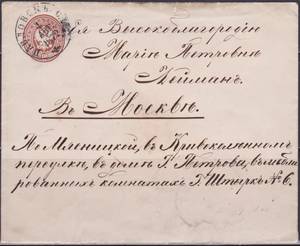 Ея Высокоблагородію
Маріи Петровнѣ
Нейманъ.
Въ Москвѣ.
По Мясницкой, въ Кривоколенномъ
переулкѣ, въ домѣ Г. Петрова, въ мебли-
рованныхъ комнатахъ Г. Штуркъ № 6.